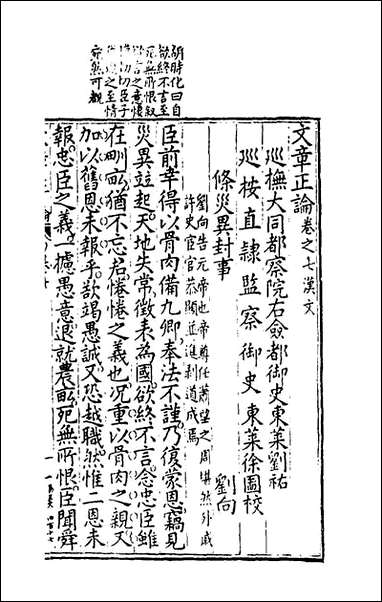 文章正論卷之七漢文
巡撫大同都察院右僉都御史東萊劉祐
巡按直隸監察御史東萊徐圖校
條災異封事
劉向
劉向告元帝也帝尊任蕭望之周堪然外戚
許史宦官恭顯近進刺道成焉
臣前幸得以骨肉備九卿奉法不謹乃復蒙恩竊見
災異竝起天地失常徵表為國欲終不言念忠臣雖
在甽畝猶不忘君惓惓之義也況重以骨肉之親又
加以舊恩未報乎欲竭愚誠又恐越職然惟二恩未
報忠臣之義一攄愚意退就農畝死無所恨臣聞舜
胡時化曰自
欲終不言至
死無所恨叙
之至情
宛然可觀